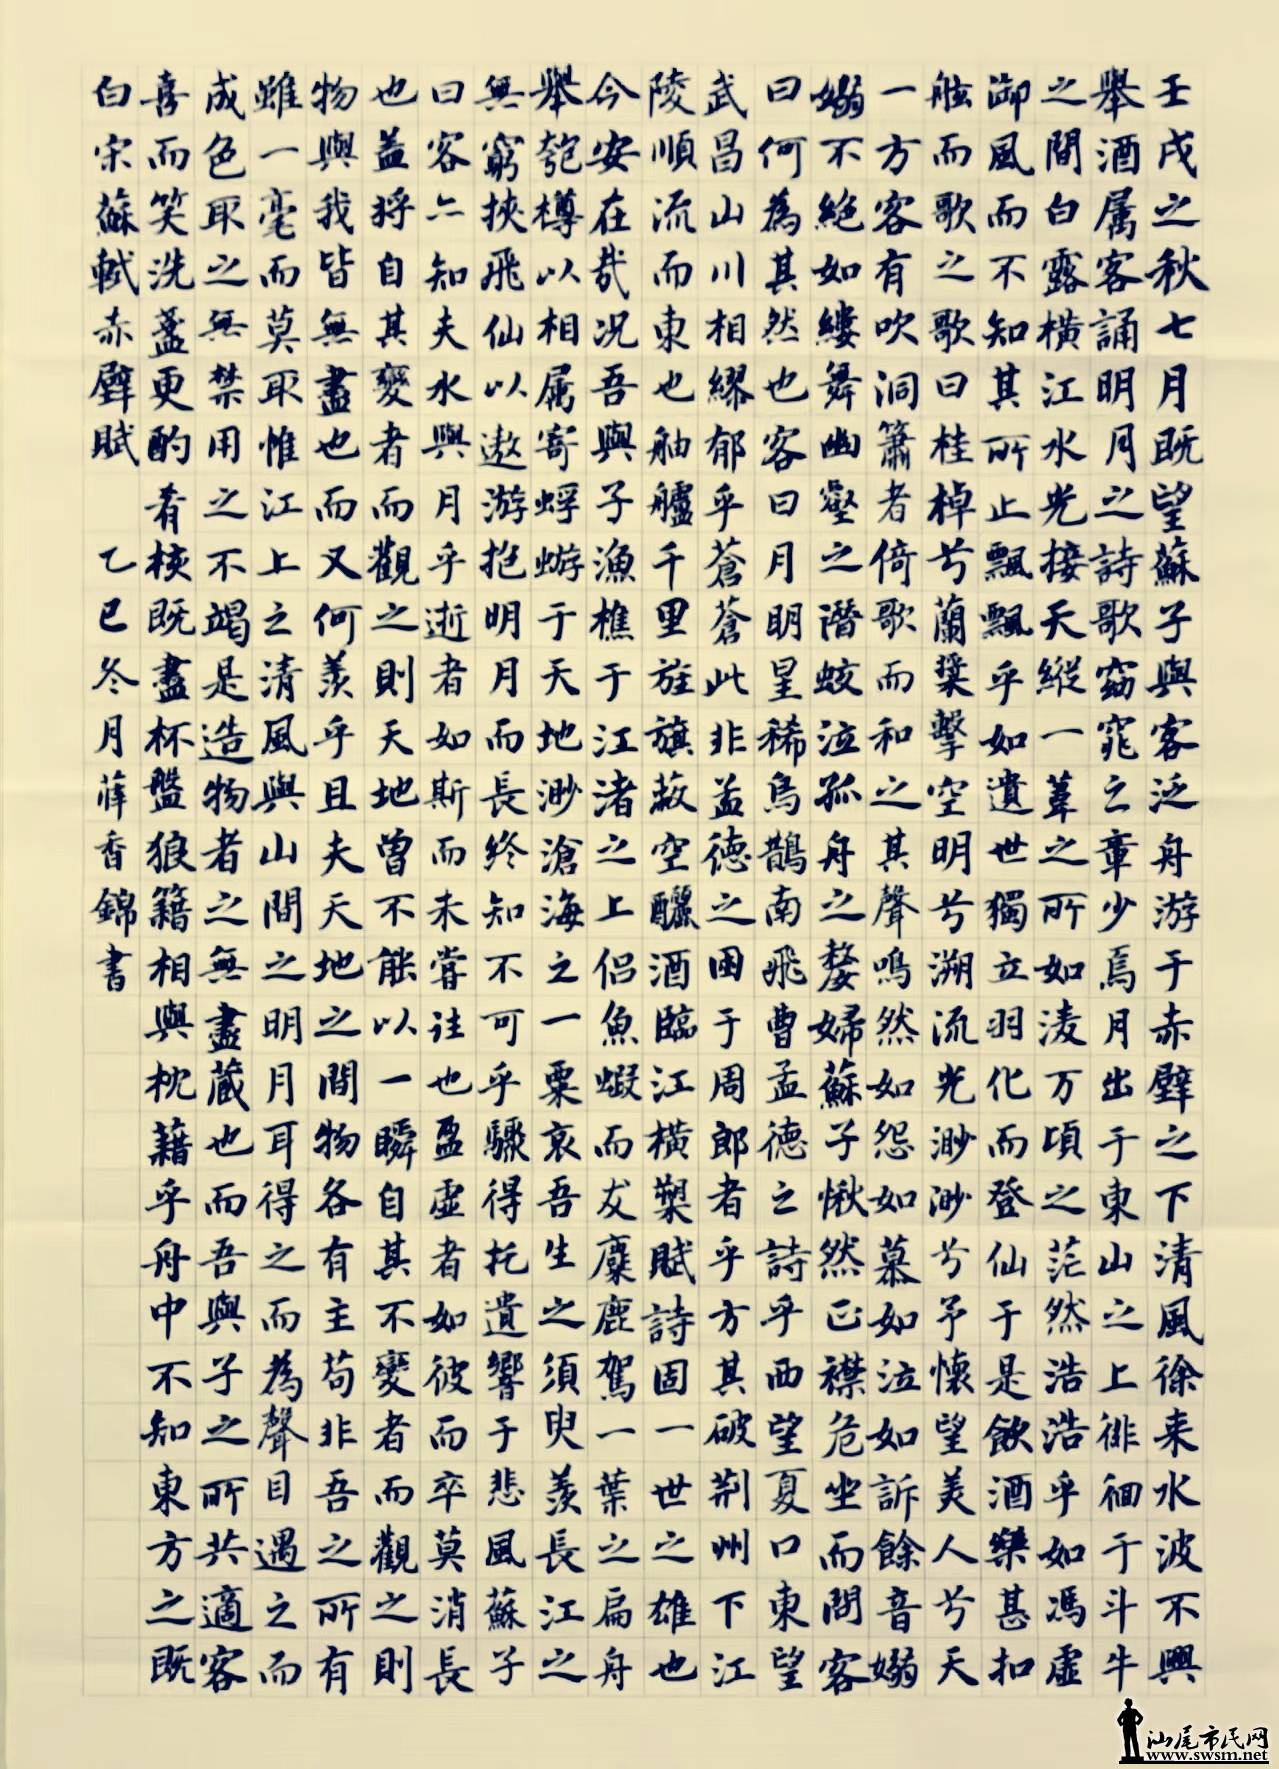 壬戌之秋七月既望蘇子與客泛舟游于赤壁之下清風徐来水波不興
舉酒属客誦明月之詩歌窈窕之章少焉月出于東山之上徘徊于斗牛
之間白露橫江水光接天縱一葦之所如凌万頃之茫然浩浩乎如馮虛
御風而不知其所止飄飄乎如遺世獨立羽化而登仙于是飲酒樂甚扣
舷而歌之歌曰桂棹兮蘭槳擊空明兮溯流光渺渺兮予懷望美人兮天
一方客有吹洞簫者倚歌而和之其聲鳴然如怨如慕如泣如訴餘音嫋
嫋不絕如縷舞幽壑之潛蛟泣孤舟之嫠婦蘇子愀然正襟危坐而問客
曰何為其然也客曰月明星稀烏鵲南飛曹孟德之詩乎西望夏口東望
武昌山川相繆郁乎蒼蒼此非孟德之困于周郎者乎方其破荆州下江
陵順流而東也舳艫千里旌旗蔽空釃酒臨江橫槊賦詩固一世之雄也
今安在哉况吾與子漁樵于江渚之上侶魚蝦而友麋鹿駕一葉之扁舟
舉匏樽以相属寄蜉蝣于天地渺滄海之一粟哀吾生之須臾羨長江之
無窮挾飛仙以遨游抱明月而長終知不可乎驟得托遺響于悲風蘇子
曰客亦知夫水與月乎逝者如斯而未嘗往也盈虛者如彼而卒莫消長
也蓋将自其變者而觀之則天地曾不能以一瞬自其不變者而觀之則
物與我皆無盡也而又何羨乎且夫天地之間物各有主苟非吾之所有
雖一毫而莫取惟江上之清風與山間之明月耳得之而為聲目遇之而
成色取之無禁用之不竭是造物者之無盡藏也而吾與子之所共適客
喜而笑洗盞更酌肴核既盡杯盤狼籍相與枕藉乎舟中不知東方之既
白宋蘇軾赤壁賦 乙巳冬月薛香錦書
汕尾市民网
www.swsm.net